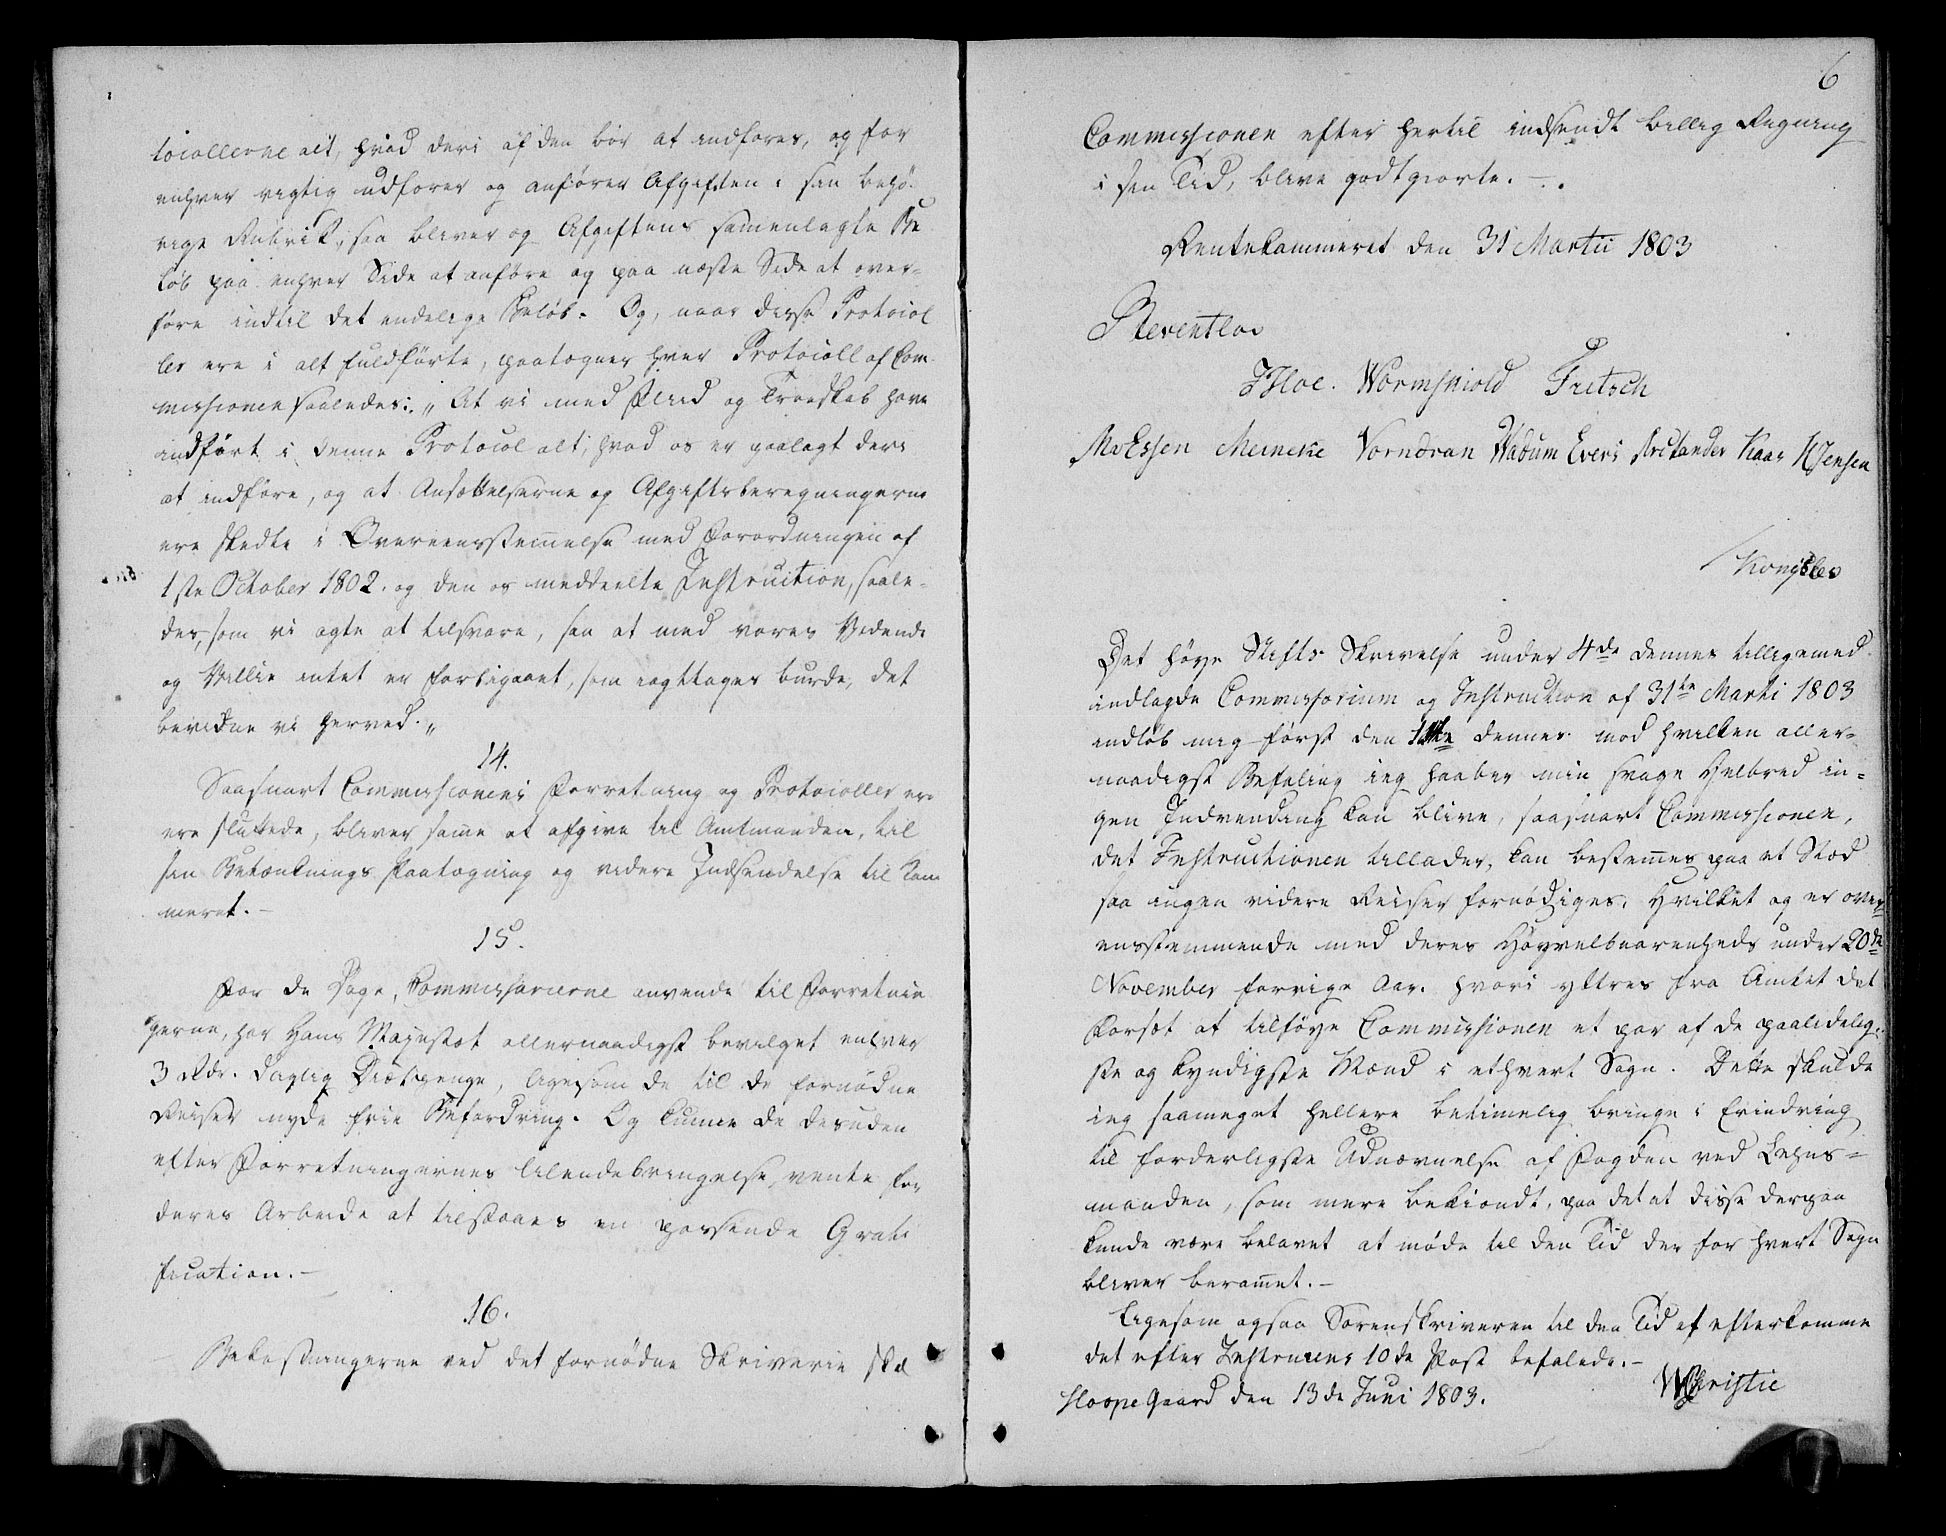 tocollerne alt, hvad deri af den bør at indføres, og for
enhver rigtig udfører og anfører Afgiften i sin behø-
rige Rubrik, saa bliver og Afgiftens samenlagte Be
løb paa enhver Side at anføre og paa næste Side at over-
føre indtil det endelige Beløb. Og, naar disse Protocol
ler ere i alt fuldførte, paategnes hver Protocoll af Com-
missionen saaledes: „At vi med Fliid og Troeskab have
indført i denne Protocol alt, hvad os er paalagt deri
at indføre, og at Ansættelserne og Afgiftsberegningerne
ere skedte i Overeensstemmelse med Forordningen af
1ste October 1802. og den os meddeelte Instruction, saale-
des, som vi agte at tilsvare, saa at med vores Vidende
og Villie intet er forbigaaet, som iagttages burde, det
bevidne vi herved.„
14.
Saasnart Commissionens Forretning og Protocoller er
ere sluttede, bliver samme at afgive til Amtmanden, til
sin Betænknings Paategning og videre Indsendelse til Kam
meret.-
15.
For de Dage, Commissarierne anvende til Forretnin
gerne, har Hans Majestæt allernaadigst bevilget enhver
3 Rdr. daglig Diætpenge, ligesom de til de fornødne
Reiser nyde frie Befordring. Og kunne de desuden
efter Forretningernes tilendebringelse, vente for
deres Arbeide at tilstaaes en passende Grati
fication.-
16.
Bekostningerne ved det fornødne Skriverie skal
6
Commissionen efter hertil indsendt billig Regning
i sin Tid, blive godtgiorte.-.
Rentekammeret den 31 Martii 1803
Reventlow
Hoe. Wormskiold Fritsch
MvEssen Meincke Vorndran Wadum Evers Arctander Kaas HJensen
Kongslev
Det høye Stifts Skrivelse under 4de dennes tilligemed
indlagde Commissorium og Instruction af 31te Marti 1803
indløb mig først den 11te dennes mod hvilken aller-
naadigst Befaling ieg haaber min svage Helbred in-
gen Indvending kan blive, saasnart Commissionen,
det Instructionen tillader, kan bestemmes paa et Stæd
saa ingen videre Reiser fornødiges. Hvilket og er over
ensstemmende med deres Høyvelbaarenheds under 20de
November forrige Aar. hvori yttres fra Amtet det
Forsæt at tilføye Commissionen et par af de paalidelig-
ste og kyndigste Mænd i ethvert Sogn. Dette skulde
ieg saameget hellere betimelig bringe i Erindring
til forderligste Udnævnelse af Fogden ved Lehns-
manden, som mere bekiendt, paa det at disse derpaa
kunde være belavet at møde til den Tid der for hvert Sogn
bliver berammet.-
Ligesom ogsaa Sorenskriveren til den Tid at efterkomme
det efter Instruxens 10de Post befalede.-
Hoope Gaard den 13de Juni 1803.
WChristie